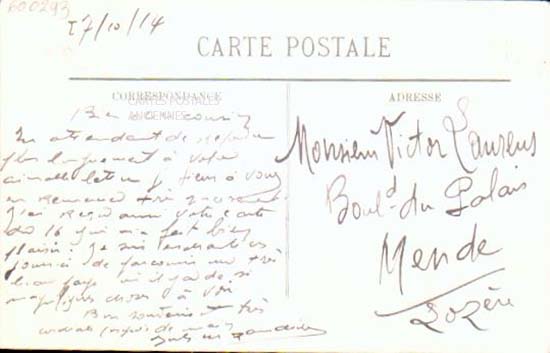 600293
17/10/14
CARTE POSTALE
CORRESPONDANCE
CARTES POSTALES
ANCIENNES
Bien cousin
En attendant de répondre
plus longuement à votre
aimable lettre je tiens à vous
en remercier très
J'ai reçu aussi votre carte
du 16 qui m'a fait bien
plaisir. Je suis
de parcourir un très
beau pays où il y a de si
magnifiques choses à voir
Bon souvenir et très
ADRESSE
Monsieur Victor Laurens
Boul.d du Palais
Mende
Lozère